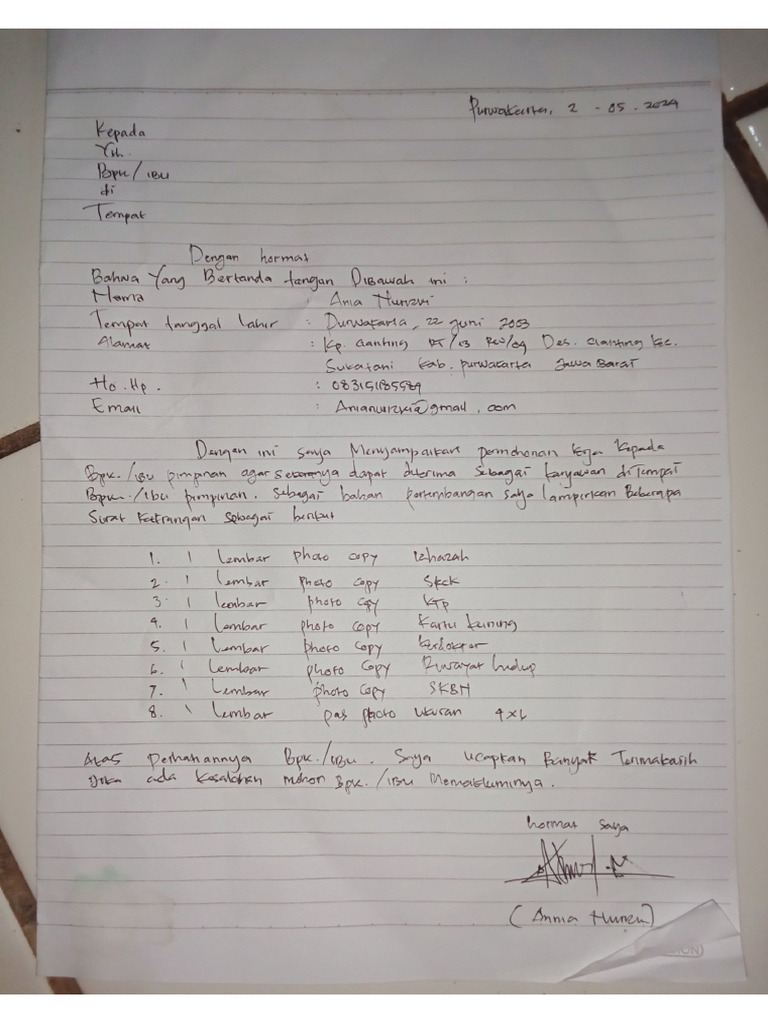 Purwakarta, 2 - 05 . 2024
Kepada
Yth.
Bpk / IBU
di
Tempat
Dengan hormat
Bahwa Yang Bertanda tangan Dibawah ini :
Nama : Ania Nurizki
Tempat tanggal lahir : Purwakarta, 22 Juni 2003
Alamat : Kp. Cianting RT/13 RW/04 Des. Cianting Kec.
Sukatani Kab. purwakarta Jawa Barat
No. Hp. : 083151185589
Email : Anianurizki@gmail.com
Dengan ini saya Menyampaikan permohonan kerja Kepada
Bpk. /IBU pimpinan agar dapat diterima sebagai karyawan diTempat
Bapak /Ibu pimpinan. Sebagai bahan saya lampirkan Beberapa
Surat sebagai berikut
1. 1 Lembar photo copy Izhazah
2. 1 Lembar photo copy SKCK
3. 1 Lembar photo copy KTP
4. 1 Lembar photo copy Kartu kuning
5. 1 Lembar photo copy
6. 1 Lembar photo copy Riwayat hidup
7. 1 Lembar photo copy SKBN
8. 1 Lembar pas photo ukuran 4x6
Atas Perhatiannya Bpk. /IBU. Saya ucapkan Banyak Terimakasih
Jika ada kesalahan mohon Bpk. /IBU Memakluminya.
hormat saya
(Annia )